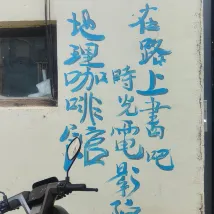 在路上書吧
時光電影院
地理咖啡館